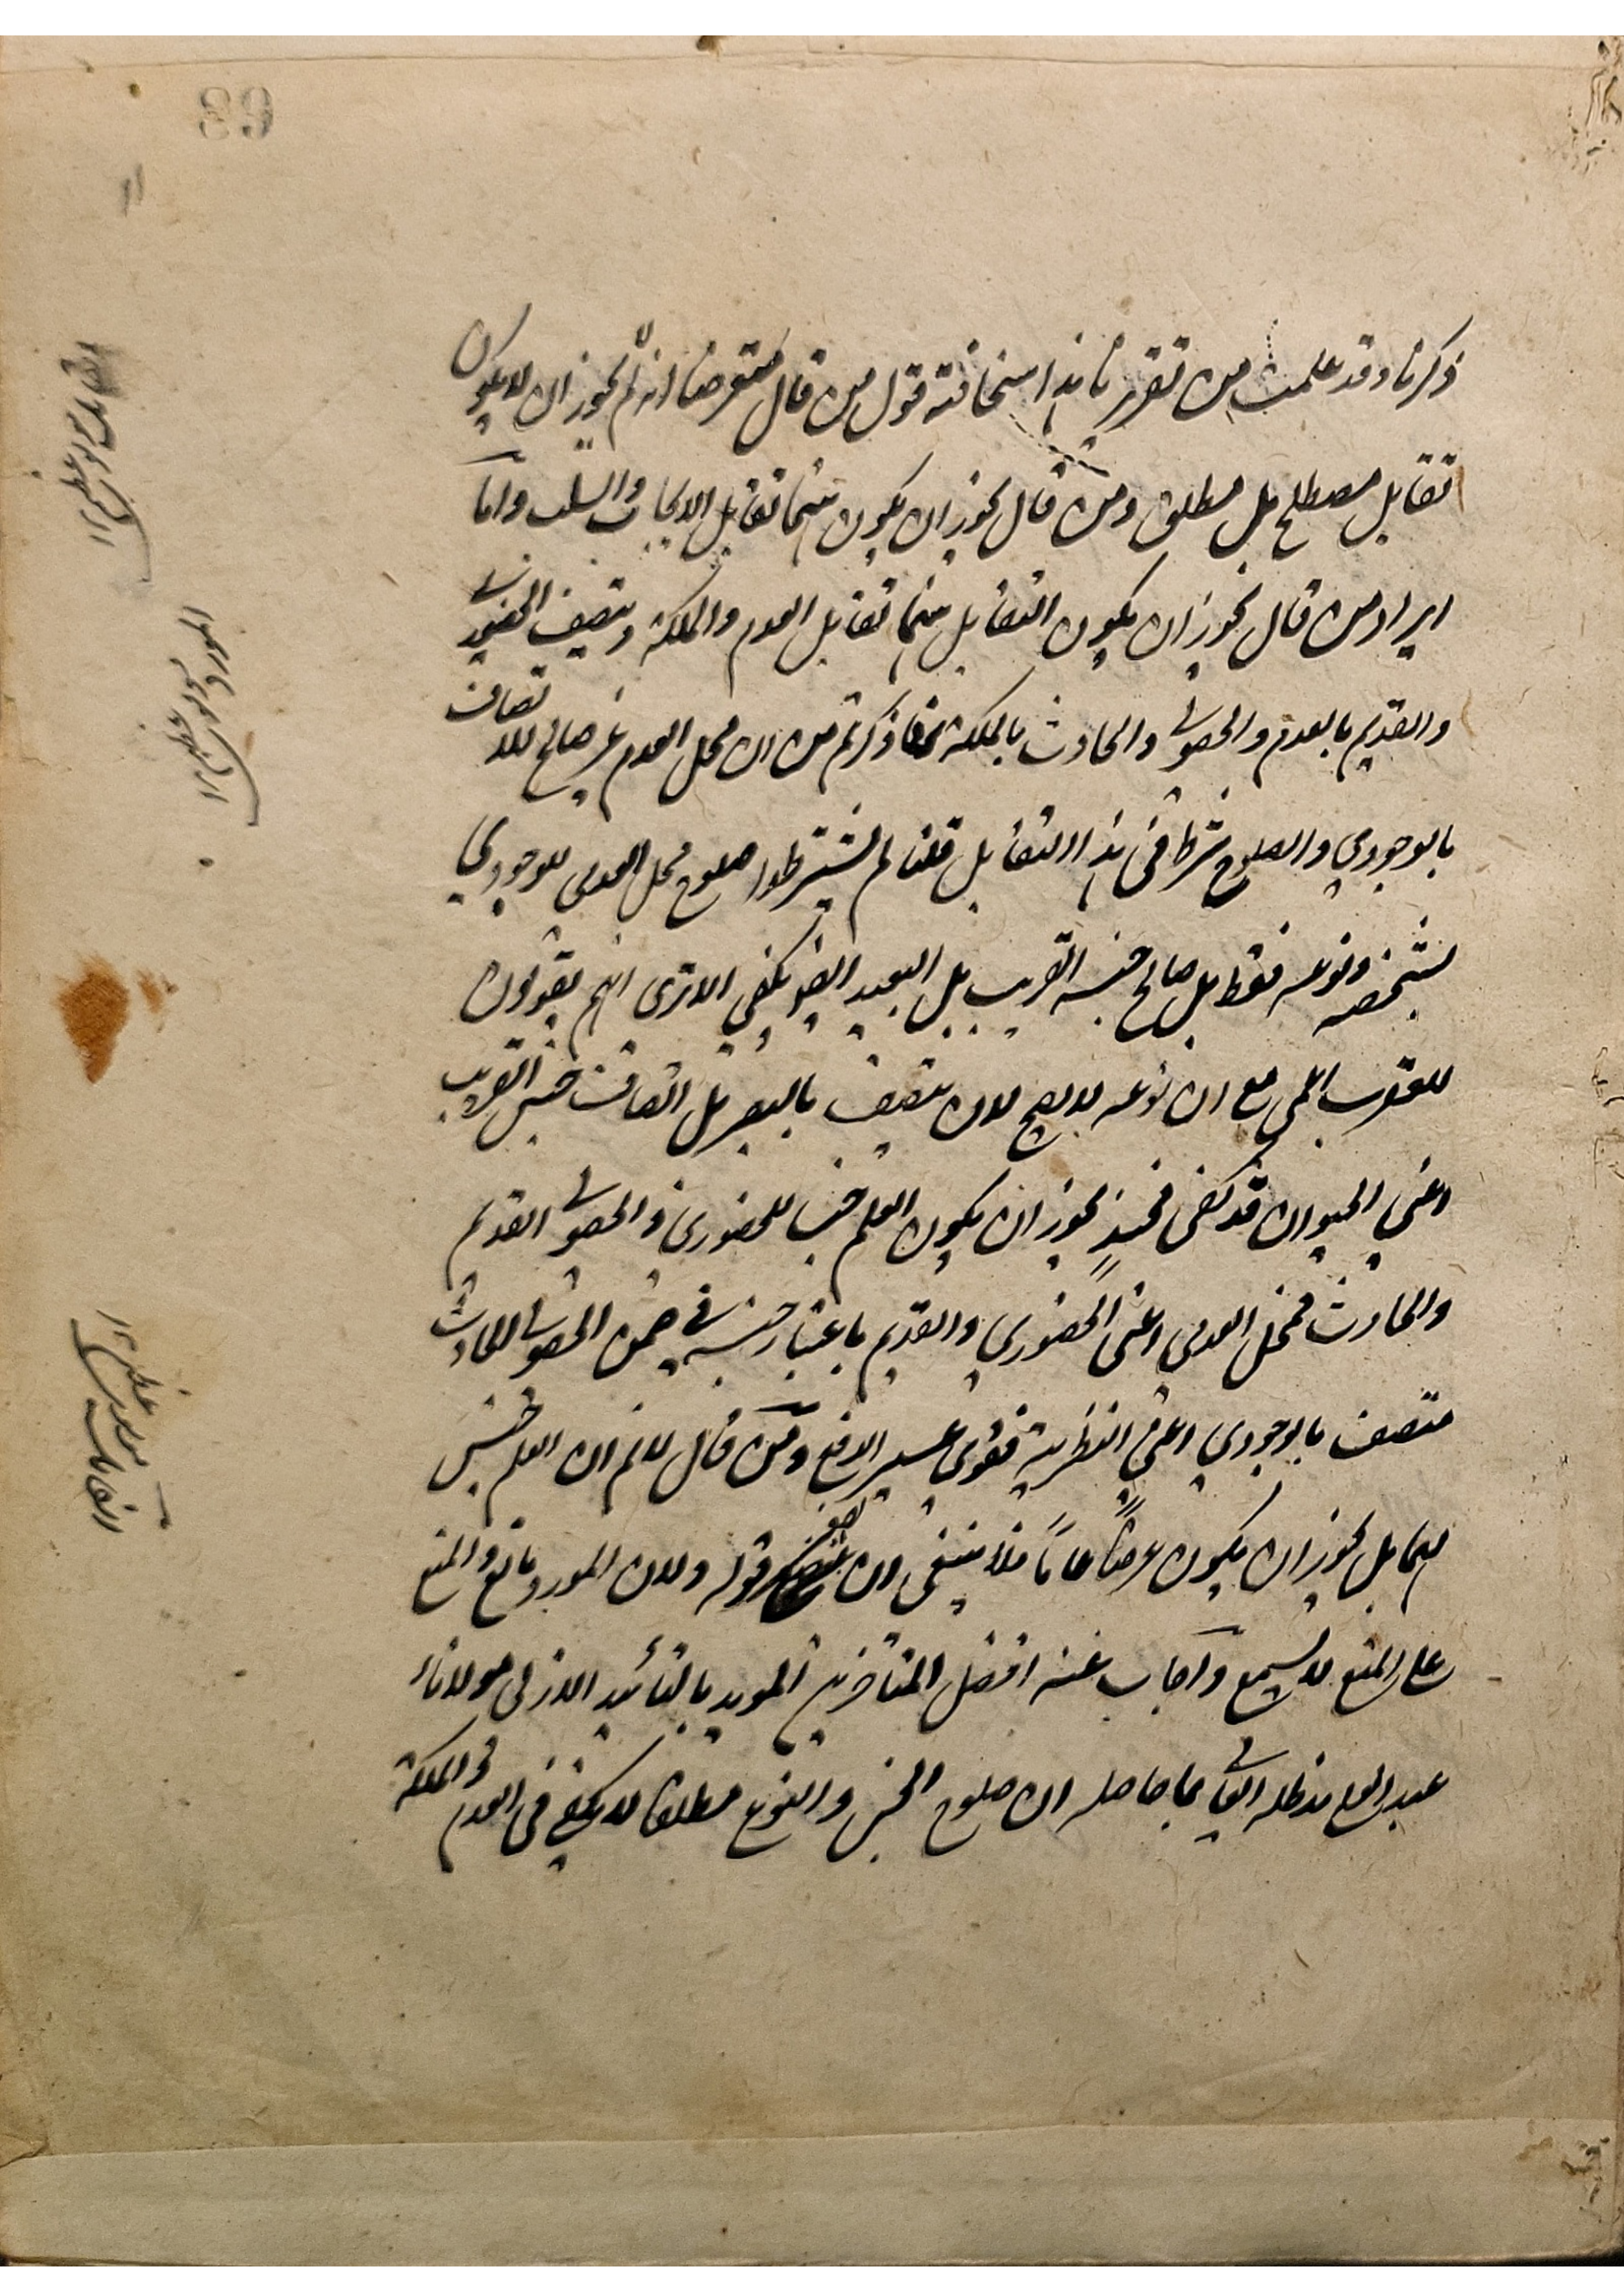 ذكرنا وقد علمت من تقريرنا هذا سخافة قول من قال معترضا انه لم لا يجوز ان لا يكون
تقابل مصطلح بل مطلق ومن قال يجوز ان يكون بينهما تقابل الايجاب والسلب واما
ايراد من قال يجوز ان يكون التقابل بينهما تقابل العدم والملكة ويتصف الحضوري
والقديم بالعدم والحصولي والحادث بالملكة فما ذكرتم من ان محل العدم غير صالح للاتصاف
بالوجودي والصلوح شرط في هذا التقابل قلنا لم يشترطوا صلوح محل العدمي للوجودي
بشخصه ونوعه فقط بل صالح جنسه القريب بل البعيد ايضا يكفي الا ترى انهم يقولون
للعقرب اعمى مع ان نوعه لا يصح لان يتصف بالبصر بل اتصاف جنس القريب
اعني الحيوان قد كفى فحينئذ يجوز ان يكون العلم جنسا للحضوري والحصولي القديم
والحادث فمحل العدمي اعني الحضوري والقديم باعتبار جنسه في ضمن الحصولي الحادث
متصف بالوجودي اعني النظرية فقوي عسير الدفع ومن قال لا نم ان العلم جنس
لهما بل يجوز ان يكون عرضا عاما فلا ينبغي ان يصغى قوله ولان المورد مانع والمنع
على المنع لا يسمع واجاب عنه افضل المتاخرين المويد بالتأئيد الازلي مولانا
عبد العلي مد ظله العالي بما حاصله ان صلوح الجنس والنوع مطلقا لا يكفي في العدم والملكة
القائل مولوي عظيم ١٢
المورد مولوي عظيم ١٢
القائل مولوي عظيم ١٢